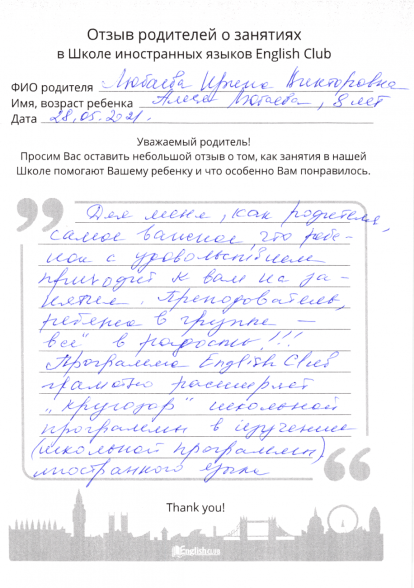 Отзыв родителей о занятиях
в Школе иностранных языков English Club
ФИО родителя Любаева Ирина Викторовна
Имя, возраст ребенка Алиса Любаева, 8 лет
Дата 28.05.2021.
Уважаемый родитель!
Просим Вас оставить небольшой отзыв о том, как занятия в нашей
Школе помогают Вашему ребенку и что особенно Вам понравилось.
Для меня, как родителя,
самое важное, что ребе-
нок с удовольствием
приходит к вам на за-
нятия. Преподователь,
ребята в группе –
всё в радость!!!
Программа English Club
грамотно расширяет
"кругозор" школьной
программы в изучении
(школьной программы)
иностранного языка
Thank you!
English Club